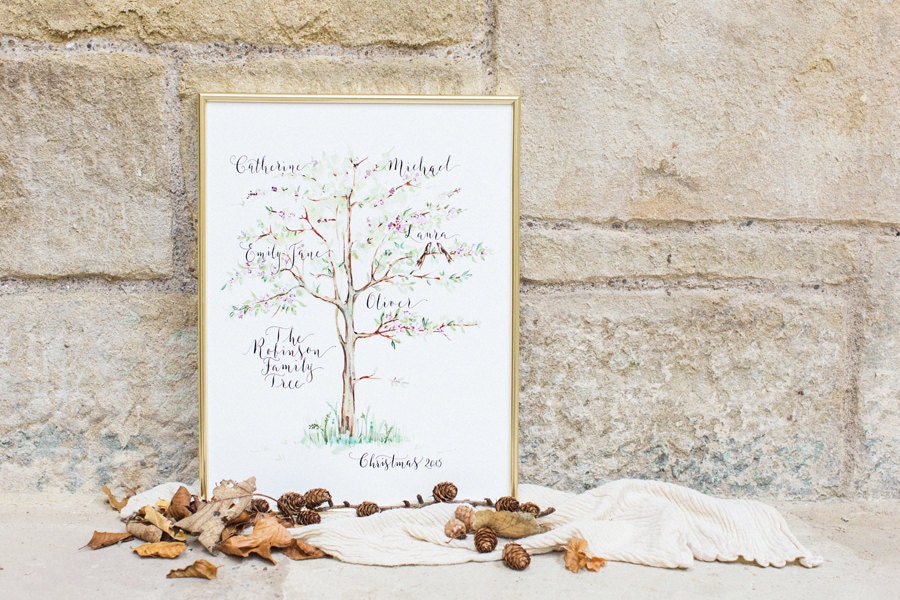 Catherine
Michael
Laura
Emily Jane
Oliver
The
Robinson
Family
Tree
Christmas 2015